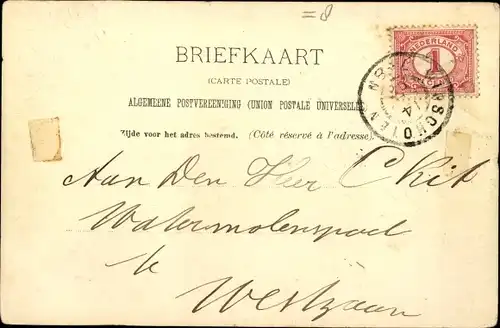 =8
BRIEFKAART
(CARTE POSTALE)
ALGEMEENE POSTVEREENIGING (UNION POSTALE UNIVERSELLE)
Zijde voor het adres bestemd. (Côté réservé à l'adresse).
NEDERLAND
1
Aan Den Heer C Kit
Watermolenspad
te
Westzaan